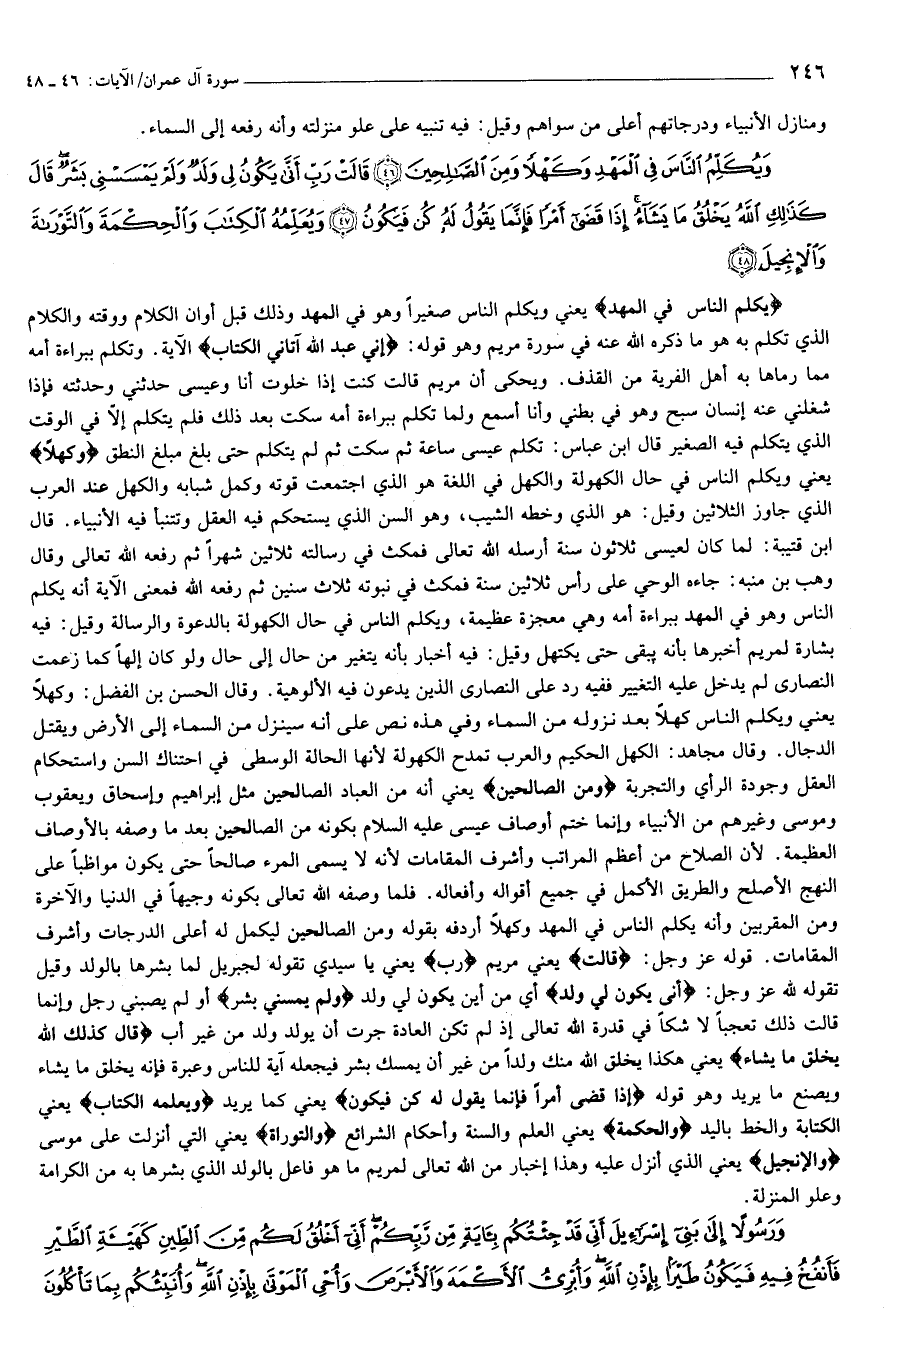 ٢٤٦ سورة آل عمران/ الآيات: ٤٦ ـ ٤٨
ومنازل الأنبياء ودرجاتهم أعلى من سواهم وقيل: فيه تنبيه على علو منزلته وأنه رفعه إلى السماء.
وَيُكَلِّمُ النَّاسَ فِي الْمَهْدِ وَكَهْلًا وَمِنَ الصَّالِحِينَ ﴿٤٦﴾ قَالَتْ رَبِّ أَنَّى يَكُونُ لِي وَلَدٌ وَلَمْ يَمْسَسْنِي بَشَرٌ قَالَ
كَذَلِكِ اللَّهُ يَخْلُقُ مَا يَشَاءُ إِذَا قَضَى أَمْرًا فَإِنَّمَا يَقُولُ لَهُ كُن فَيَكُونُ ﴿٤٧﴾ وَيُعَلِّمُهُ الْكِتَابَ وَالْحِكْمَةَ وَالتَّوْرَاةَ
وَالْإِنجِيلَ ﴿٤٨﴾
﴿يكلم الناس في المهد﴾ يعني ويكلم الناس صغيراً وهو في المهد وذلك قبل أوان الكلام ووقته والكلام
الذي تكلم به هو ما ذكره الله عنه في سورة مريم وهو قوله: ﴿إني عبد الله آتاني الكتاب﴾ الآية. وتكلم ببراءة أمه
مما رماها به أهل الفرية من القذف. ويحكى أن مريم قالت كنت إذا خلوت أنا وعيسى حدثني وحدثته فإذا
شغلني عنه إنسان سبح وهو في بطني وأنا أسمع ولما تكلم ببراءة أمه سكت بعد ذلك فلم يتكلم إلّا في الوقت
الذي يتكلم فيه الصغير قال ابن عباس: تكلم عيسى ساعة ثم سكت ثم لم يتكلم حتى بلغ مبلغ النطق ﴿وكهلاً﴾
يعني ويكلم الناس في حال الكهولة والكهل في اللغة هو الذي اجتمعت قوته وكمل شبابه والكهل عند العرب
الذي جاوز الثلاثين وقيل: هو الذي وخطه الشيب، وهو السن الذي يستحكم فيه العقل وتتنبأ فيه الأنبياء. قال
ابن قتيبة: لما كان لعيسى ثلاثون سنة أرسله الله تعالى فمكث في رسالته ثلاثين شهراً ثم رفعه الله تعالى وقال
وهب بن منبه: جاءه الوحي على رأس ثلاثين سنة فمكث في نبوته ثلاث سنين ثم رفعه الله فمعنى الآية أنه يكلم
الناس وهو في المهد ببراءة أمه وهي معجزة عظيمة، ويكلم الناس في حال الكهولة بالدعوة والرسالة وقيل: فيه
بشارة لمريم أخبرها بأنه يبقى حتى يكتهل وقيل: فيه أخبار بأنه يتغير من حال إلى حال ولو كان إلهاً كما زعمت
النصارى لم يدخل عليه التغيير ففيه رد على النصارى الذين يدعون فيه الألوهية. وقال الحسن بن الفضل: وكهلاً
يعني ويكلم الناس كهلاً بعد نزوله من السماء وفي هذه نص على أنه سينزل من السماء إلى الأرض ويقتل
الدجال. وقال مجاهد: الكهل الحكيم والعرب تمدح الكهولة لأنها الحالة الوسطى في احتناك السن واستحكام
العقل وجودة الرأي والتجربة ﴿ومن الصالحين﴾ يعني أنه من العباد الصالحين مثل إبراهيم وإسحاق ويعقوب
وموسى وغيرهم من الأنبياء وإنما ختم أوصاف عيسى عليه السلام بكونه من الصالحين بعد ما وصفه بالأوصاف
العظيمة. لأن الصلاح من أعظم المراتب وأشرف المقامات لأنه لا يسمى المرء صالحاً حتى يكون مواظباً على
النهج الأصلح والطريق الأكمل في جميع أقواله وأفعاله. فلما وصفه الله تعالى بكونه وجيهاً في الدنيا والآخرة
ومن المقربين وأنه يكلم الناس في المهد وكهلاً أردفه بقوله ومن الصالحين ليكمل له أعلى الدرجات وأشرف
المقامات. قوله عز وجل: ﴿قالت﴾ يعني مريم ﴿رب﴾ يعني يا سيدي تقوله لجبريل لما بشرها بالولد وقيل
تقوله لله عز وجل: ﴿أنى يكون لي ولد﴾ أي من أين يكون لي ولد ﴿ولم يمسني بشر﴾ أو لم يصبني رجل وإنما
قالت ذلك تعجباً لا شكاً في قدرة الله تعالى إذ لم تكن العادة جرت أن يولد ولد من غير أب ﴿قال كذلك الله
يخلق ما يشاء﴾ يعني هكذا يخلق الله منك ولداً من غير أن يمسك بشر فيجعله آية للناس وعبرة فإنه يخلق ما يشاء
ويصنع ما يريد وهو قوله ﴿إذا قضى أمراً فإنما يقول له كن فيكون﴾ يعني كما يريد ﴿ويعلمه الكتاب﴾ يعني
الكتابة والخط باليد ﴿والحكمة﴾ يعني العلم والسنة وأحكام الشرائع ﴿والتوراة﴾ يعني التي أنزلت على موسى
﴿والإنجيل﴾ يعني الذي أنزل عليه وهذا إخبار من الله تعالى لمريم ما هو فاعل بالولد الذي بشرها به من الكرامة
وعلو المنزلة.
وَرَسُولًا إِلَى بَنِي إِسْرَائِيلَ أَنِّي قَدْ جِئْتُكُم بِآيَةٍ مِّن رَّبِّكُمْ أَنِّي أَخْلُقُ لَكُم مِّنَ الطِّينِ كَهَيْئَةِ الطَّيْرِ
فَأَنفُخُ فِيهِ فَيَكُونُ طَيْرًا بِإِذْنِ اللَّهِ وَأُبْرِئُ الْأَكْمَهَ وَالْأَبْرَصَ وَأُحْيِي الْمَوْتَى بِإِذْنِ اللَّهِ وَأُنَبِّئُكُم بِمَا تَأْكُلُونَ